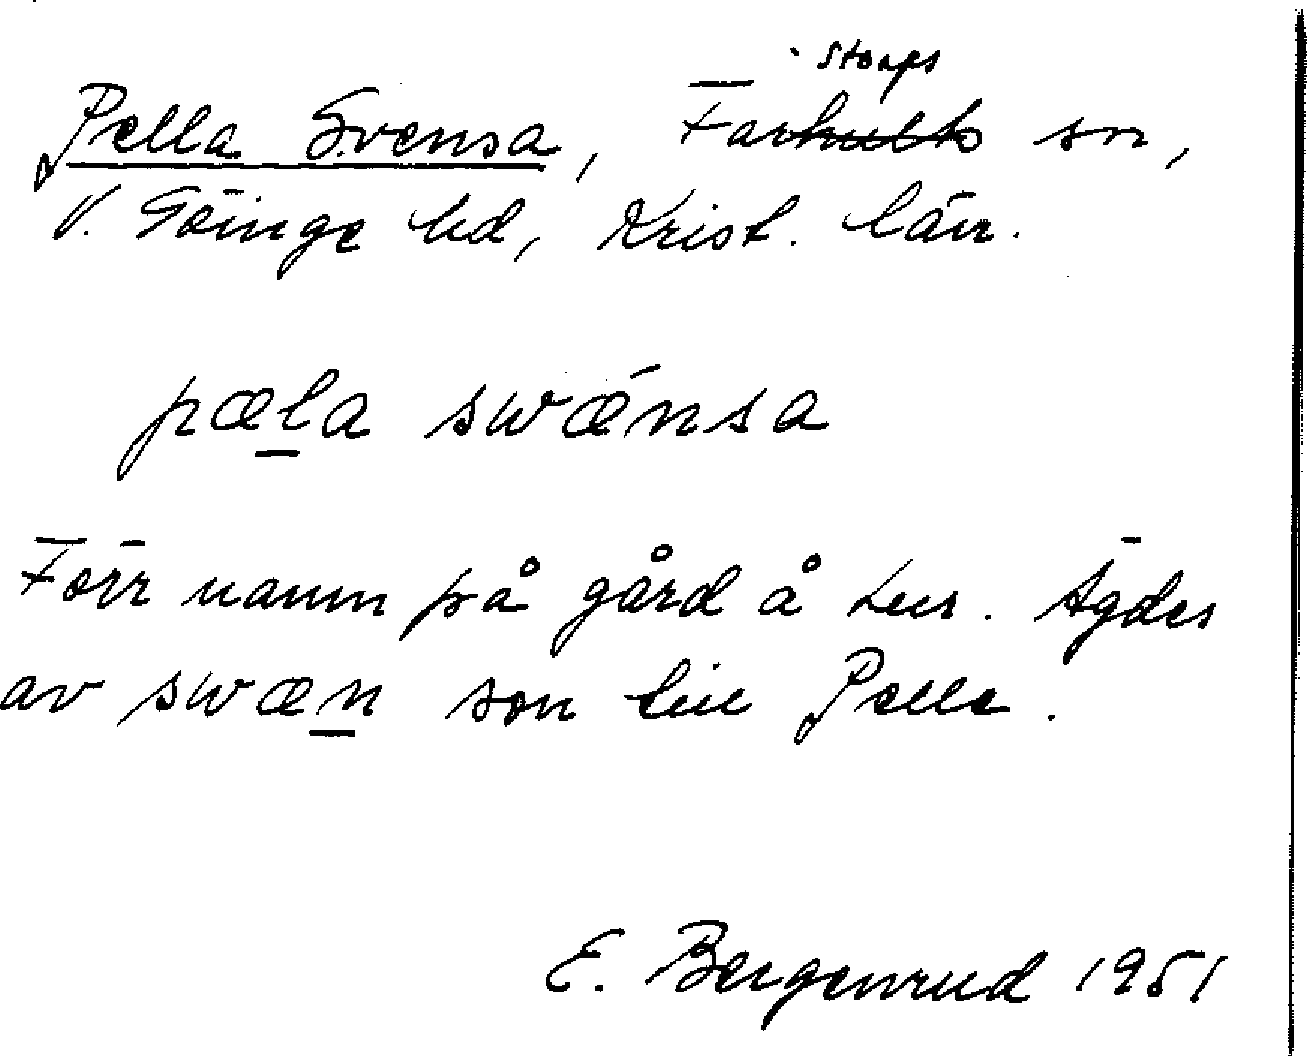 Pella Svensa, Farstorps sn,
V. Göinge hd, Krist. län.
pæla swǽnsa
Förr namn på gård å Lur. Ägdes
av swæn son till Pelle.
E. Bergenrud 1951